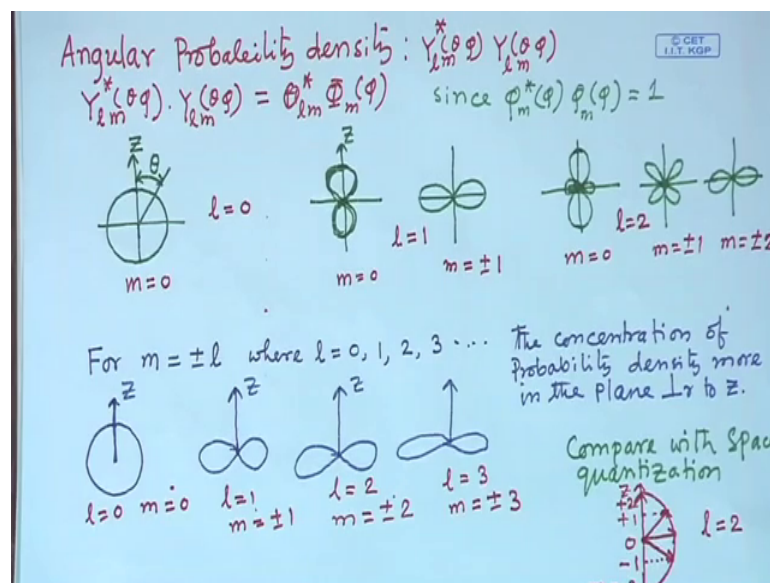 Angular Probaleility density: Y*lm(θφ) Ylm(θφ)
© CET
I.I.T. KGP
Y*lm(θφ). Ylm(θφ) = Θ*lm Φm(φ) since φ*m(φ) φm(φ) = 1
Z Z
θ
l=0 l=1 l=2
m=0 m=0 m=±1 m=0 m=±1 m=±2
For m=±l where l=0, 1, 2, 3 .... the concentration of
Probability density more
in the plane ⊥r to z.
Z Z Z
l=0 m=0 l=1 l=2 l=3
m=±1 m=±2 m=±3
Compare with Spac
quantization
Z
+2
+1
0 l=2
-1